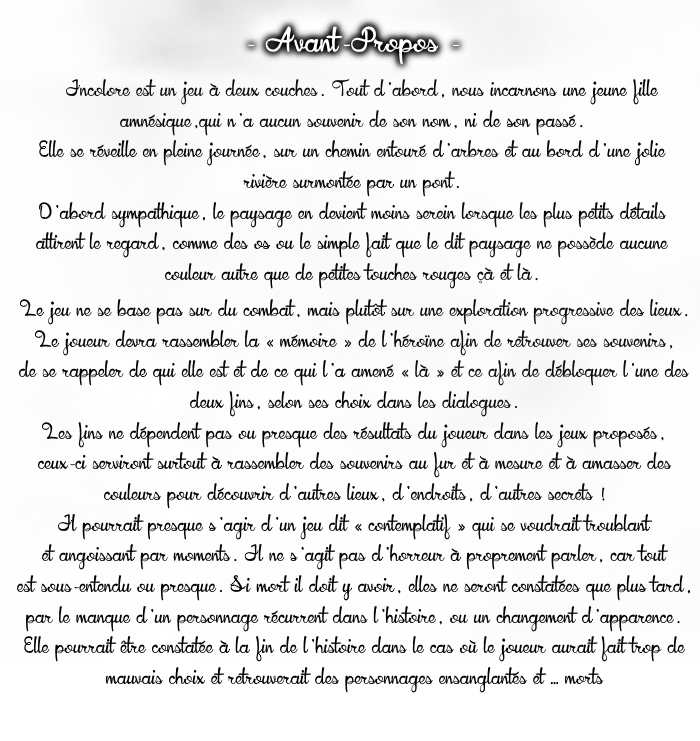 - Avant-Propos -
Incolore est un jeu à deux couches. Tout d'abord, nous incarnons une jeune fille
amnésique,qui n'a aucun souvenir de son nom, ni de son passé.
Elle se réveille en pleine journée, sur un chemin entouré d'arbres et au bord d'une jolie
rivière surmontée par un pont.
D'abord sympathique, le paysage en devient moins serein lorsque les plus petits détails
attirent le regard, comme des os ou le simple fait que le dit paysage ne possède aucune
couleur autre que de petites touches rouges çà et là.
Le jeu ne se base pas sur du combat, mais plutôt sur une exploration progressive des lieux.
Le joueur devra rassembler la « mémoire » de l'héroïne afin de retrouver ses souvenirs,
de se rappeler de qui elle est et de ce qui l'a amené « là » et ce afin de débloquer l'une des
deux fins, selon ses choix dans les dialogues.
Les fins ne dépendent pas ou presque des résultats du joueur dans les jeux proposés,
ceux-ci serviront surtout à rassembler des souvenirs au fur et à mesure et à amasser des
couleurs pour découvrir d'autres lieux, d'endroits, d'autres secrets !
Il pourrait presque s'agir d'un jeu dit « contemplatif » qui se voudrait troublant
et angoissant par moments. Il ne s'agit pas d'horreur à proprement parler, car tout
est sous-entendu ou presque. Si mort il doit y avoir, elles ne seront constatées que plus tard,
par le manque d'un personnage récurrent dans l'histoire, ou un changement d'apparence.
Elle pourrait être constatée à la fin de l'histoire dans le cas où le joueur aurait fait trop de
mauvais choix et retrouverait des personnages ensanglantés et ... morts